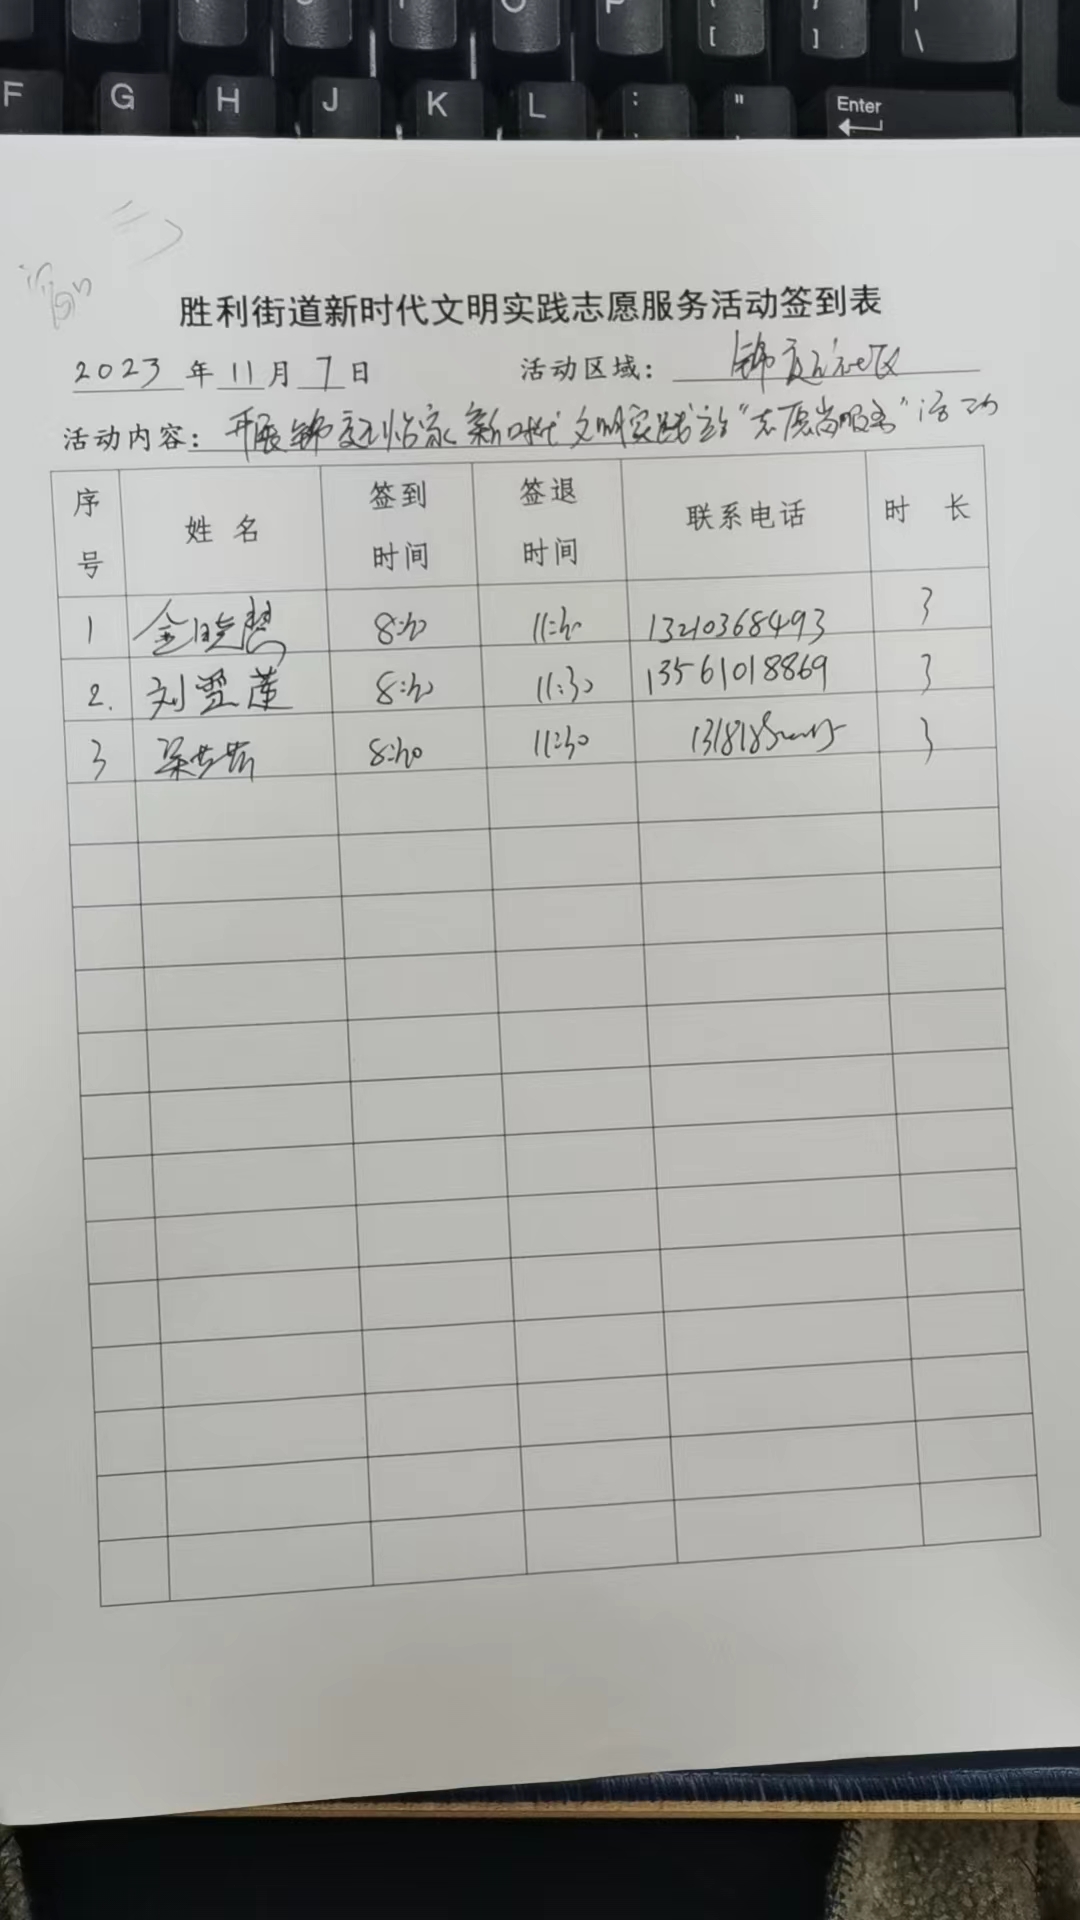 F G H J K L : " Enter
胜利街道新时代文明实践志愿服务活动签到表
2023 年 11 月 7 日 活动区域：锦苑社区
活动内容：开展锦苑怡家新时代文明实践站"志愿尚服务"活动
序号 姓名 签到时间 签退时间 联系电话 时长
1 金晓慧 8:30 11:30 13210368493 3
2. 刘翠莲 8:30 11:30 13561018869 3
3 梁 8:30 11:30 3